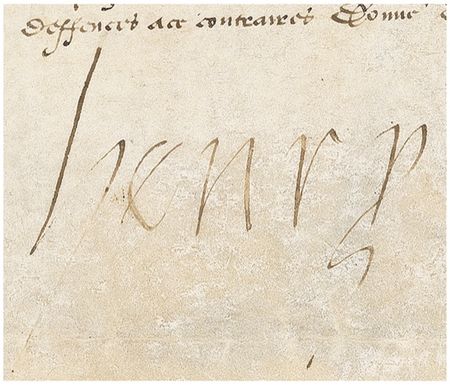 deffences a ce contraires Donné
Henry